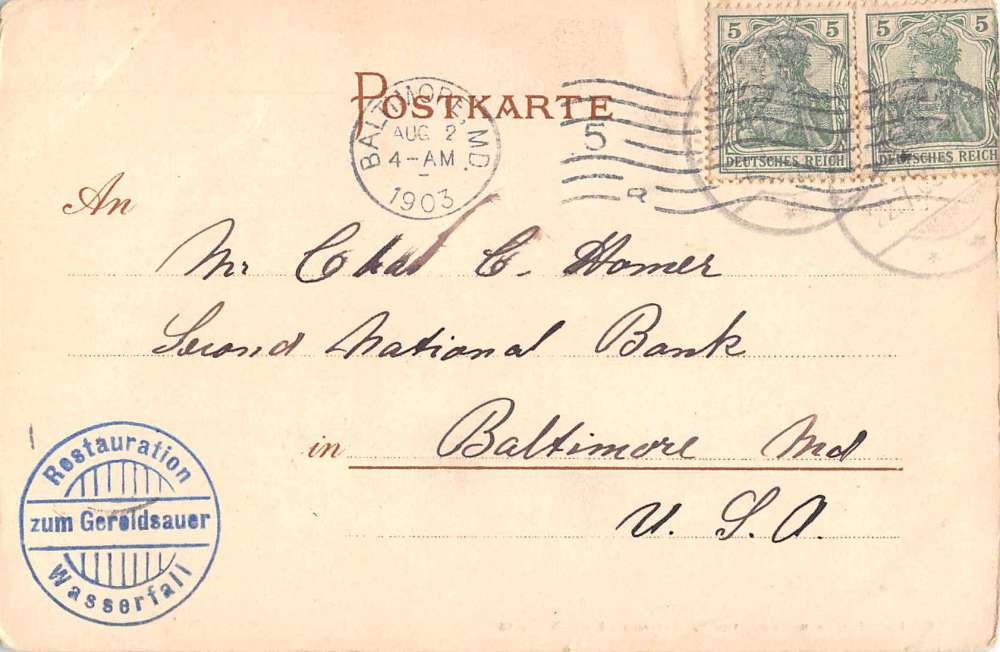 5 5 5 5
DEUTSCHES REICH DEUTSCHES REICH
POSTKARTE
BALTIMORE, MD.
AUG 2
4-AM
1903
5
An
Mr Chas C. Homer
Second National Bank
in Baltimore Md
U. S. A.
Restauration
zum Geroldsauer
Wasserfall